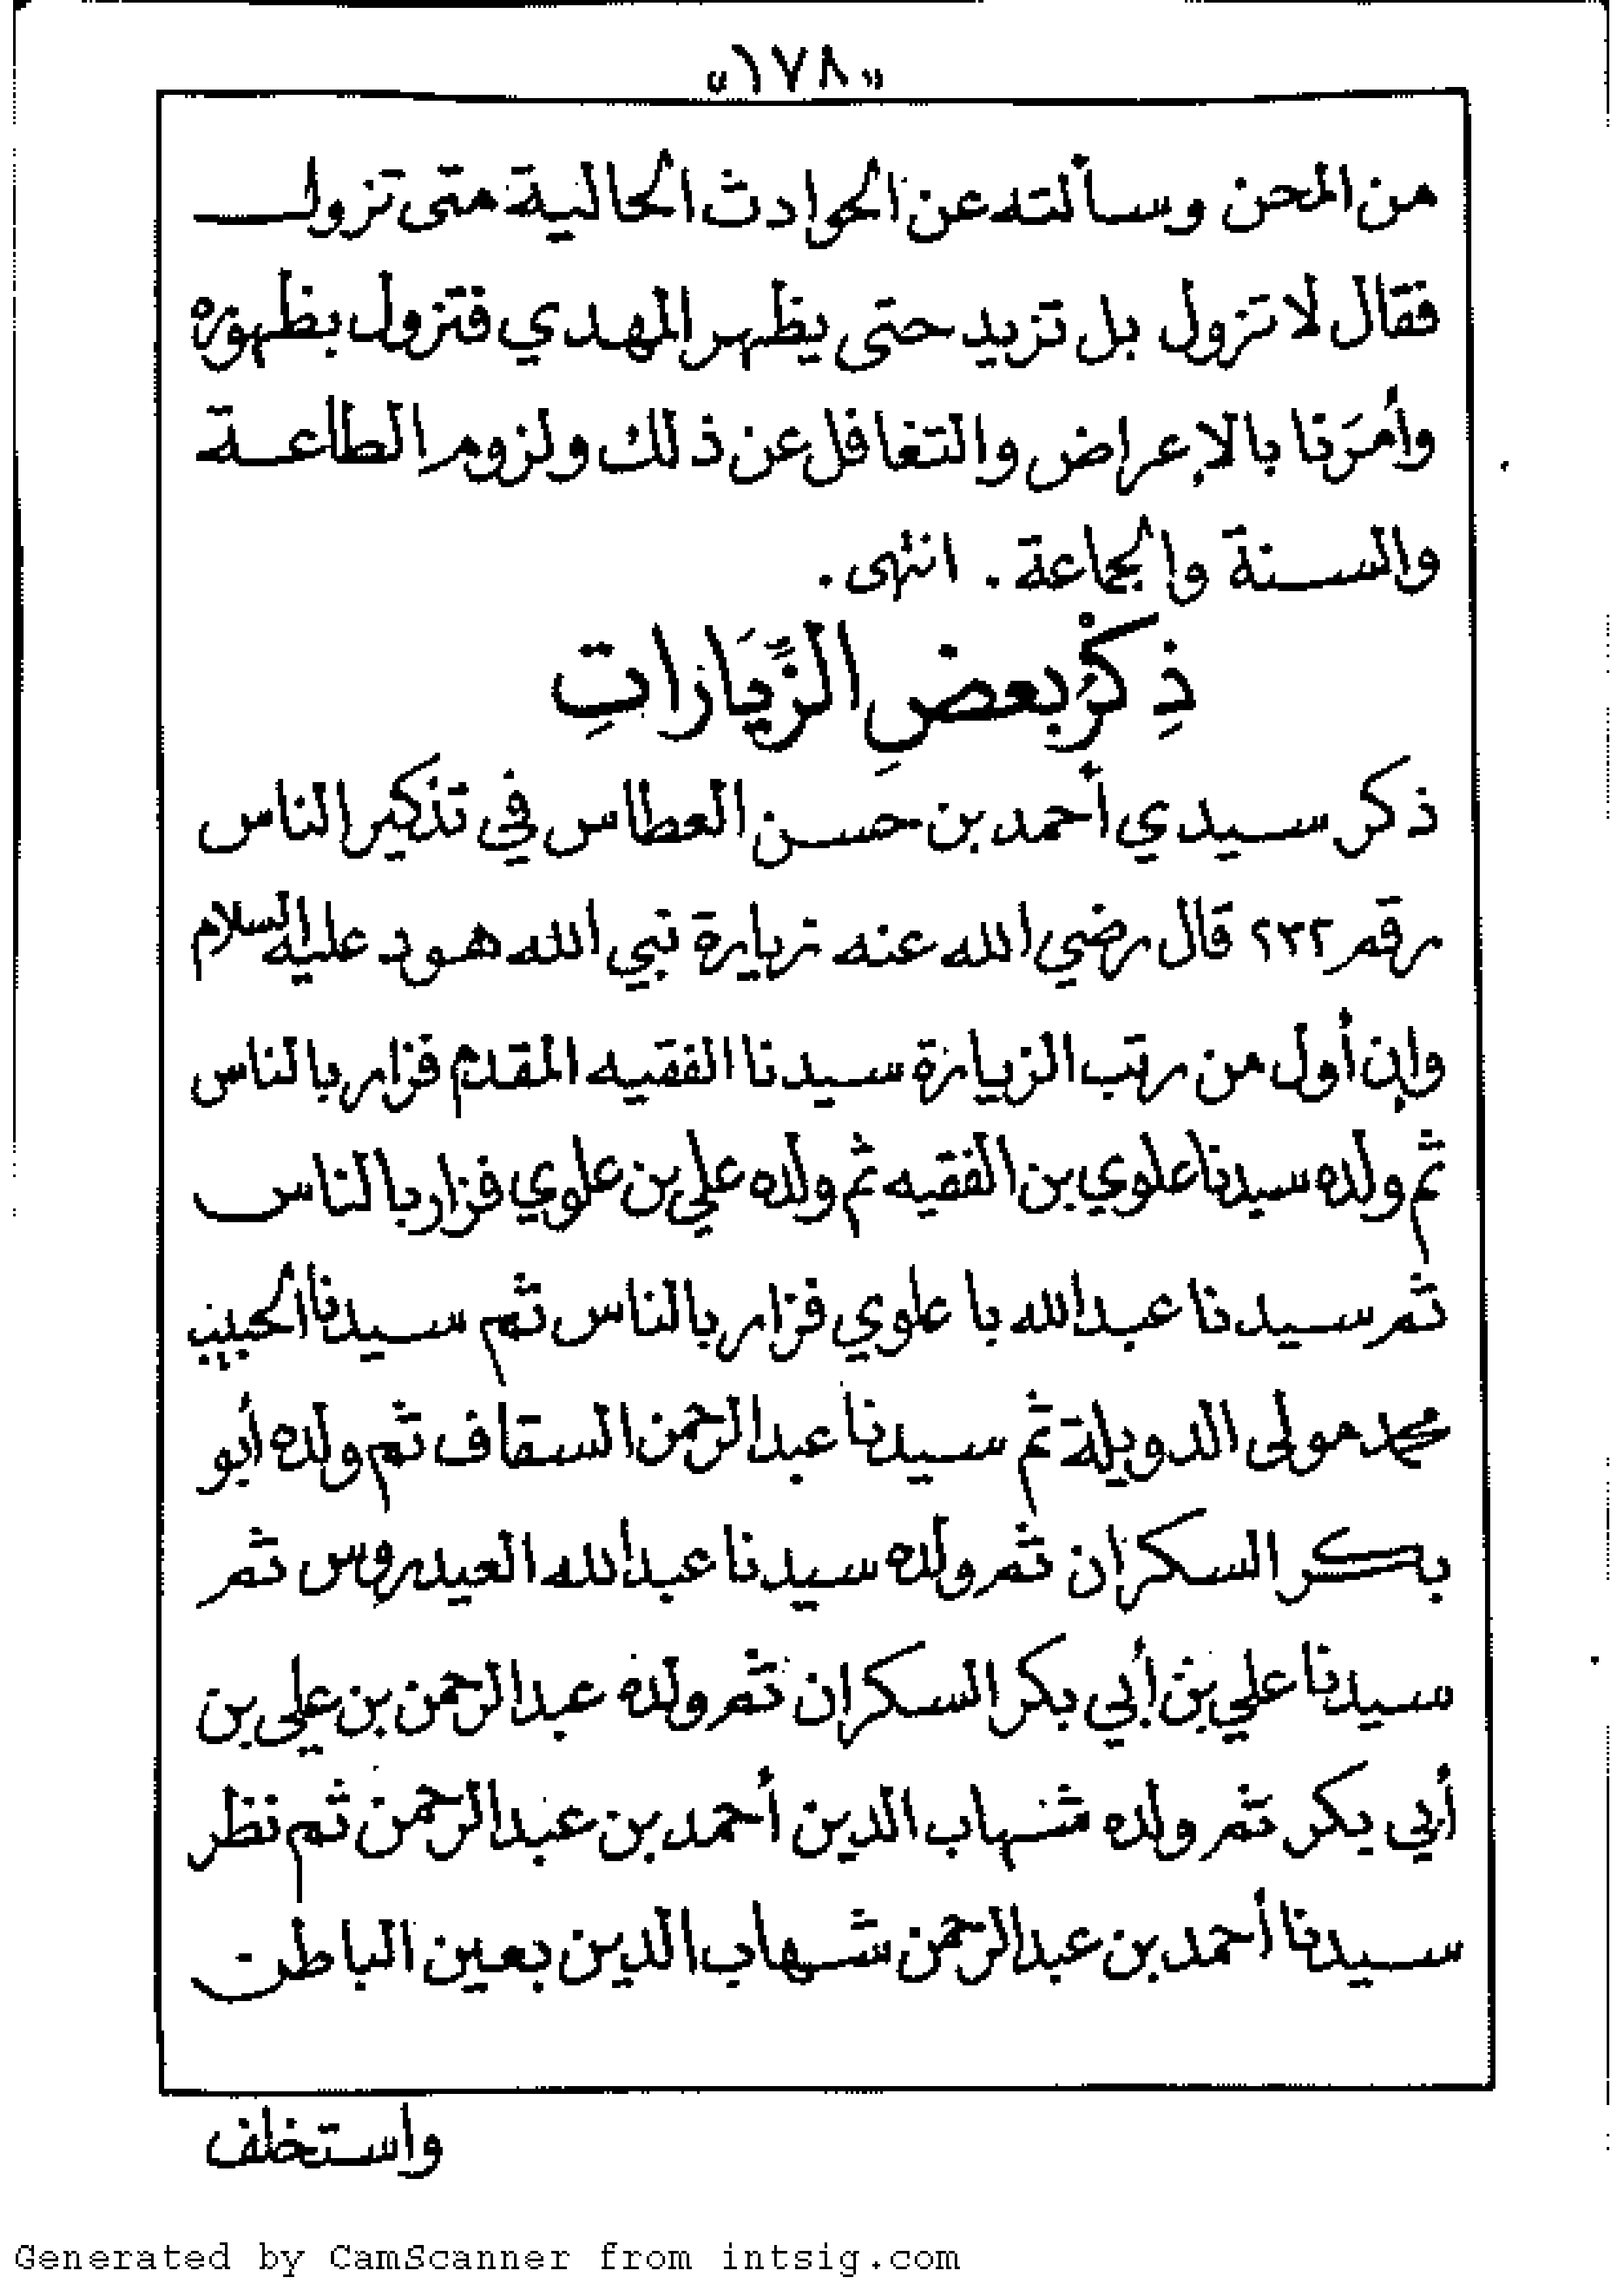 «١٧٨»
من المحن وسألته عن الحوادث الحالية متى تزول
فقال لا تزول بل تزيد حتى يظهر المهدي فتزول بظهوره
وأمَرَنا بالإعراض والتغافل عن ذلك ولزوم الطاعة
والسنة والجماعة . انتهى .
ذِكْرُ بعضِ الزِّيَارَاتِ
ذكر سيدي أحمد بن حسن العطاس في تذكير الناس
رقم ٢٣٢ قال رضي الله عنه زيارة نبي الله هود عليه السلام
وإن أول من رتب الزيارة سيدنا الفقيه المقدم فزار بالناس
ثم ولده سيدنا علوي بن الفقيه ثم ولده علي بن علوي فزار بالناس
ثم سيدنا عبدالله با علوي فزار بالناس ثم سيدنا الحبيب
محمد مولى الدويلة ثم سيدنا عبدالرحمن السقاف ثم ولده أبو
بكر السكران ثم ولده سيدنا عبدالله العيدروس ثم
سيدنا علي بن أبي بكر السكران ثم ولده عبدالرحمن بن علي بن
أبي بكر ثم ولده شهاب الدين أحمد بن عبدالرحمن ثم نظر
سيدنا أحمد بن عبدالرحمن شهاب الدين بعين الباطن
واستخلف
Generated by CamScanner from intsig.com